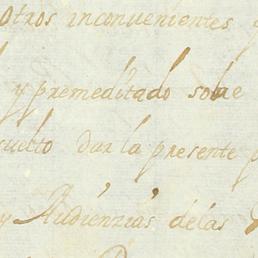 otros inconvenientes
y premeditado sobre
suelto dar la presente
y Audienzias delas